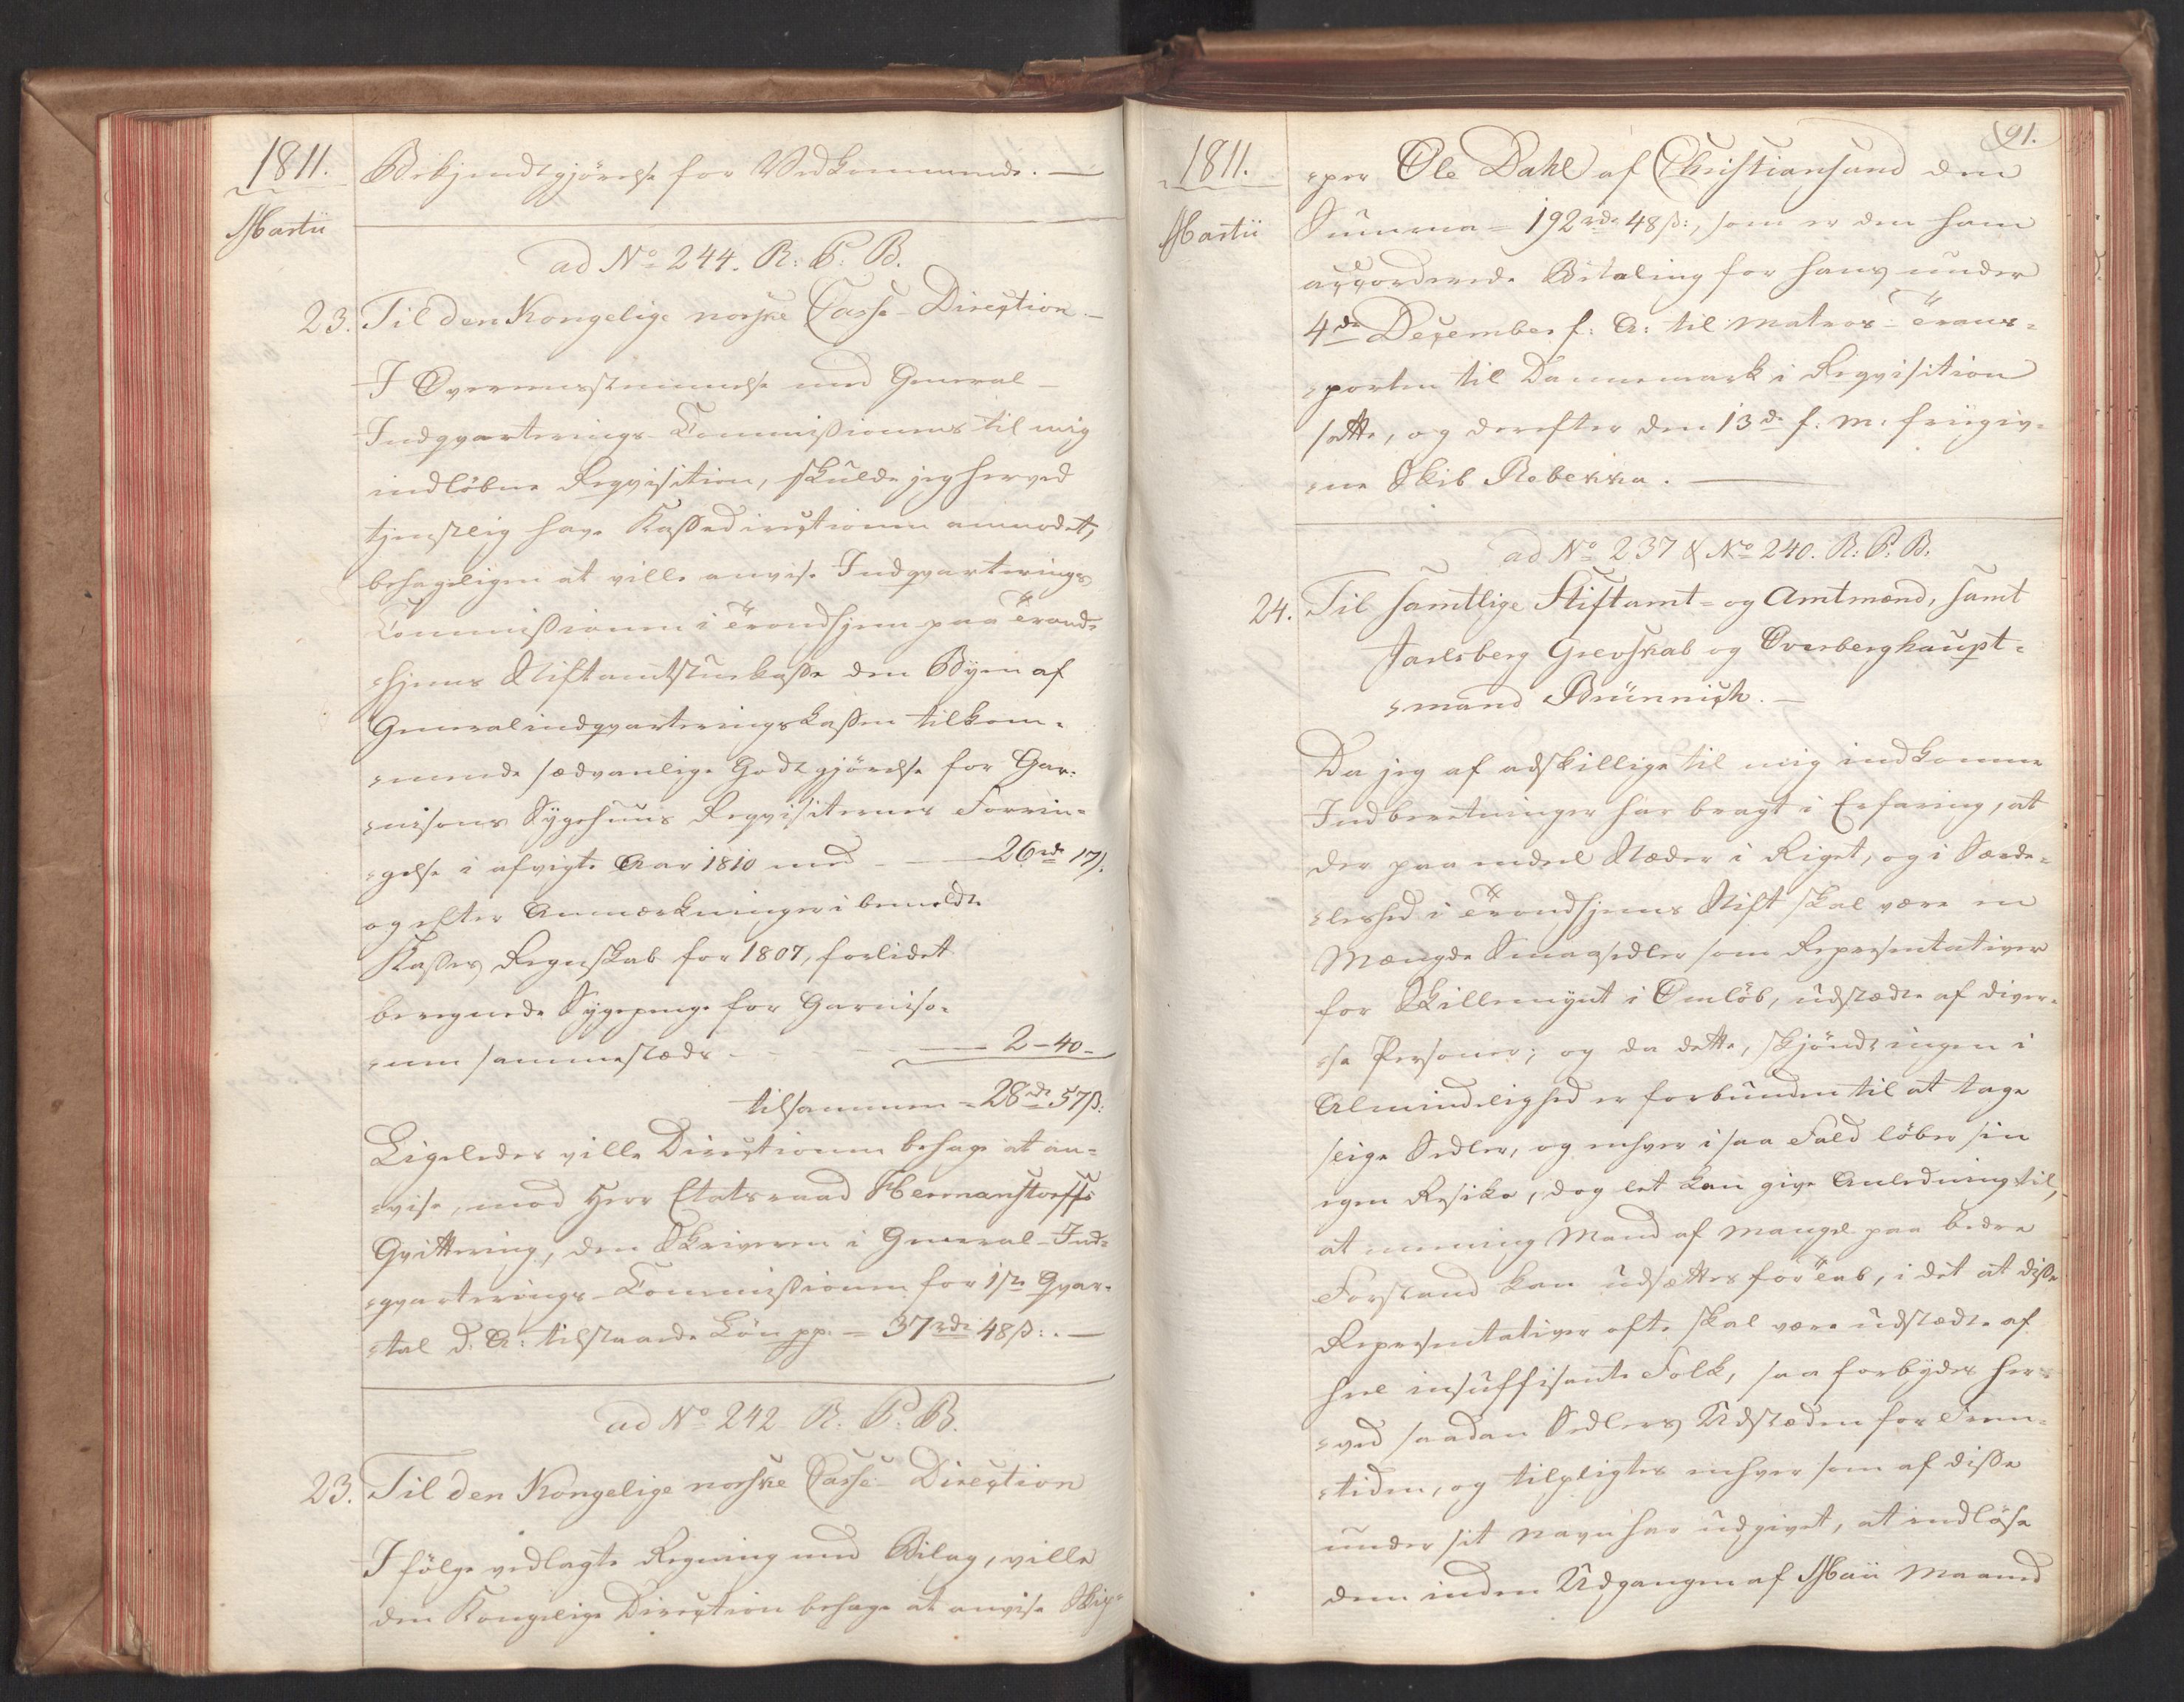 1811.
Martii
Bekjendtgjörelse for Vedkommende. —
ad No 244. R: P: B.
23. Til den Kongelige norske Casse-Direction. —
I Overeensstemmelse med General-
Indqvarterings-Commissionens til mig
indlöbne Reqvisition, skulde jeg herved
tjenstlig have Kassedirectionen anmodet,
behageligen at ville anvise Indqvarterings
Commissionen i Trondhjem paa Trond-
hjems Stiftamtstuekasse den Byen af
Generalindqvarteringskassen tilkom-
mende sædvanlige Godtgjörelse for Gar-
nisons Sygehuus Reqvisiternes Forrin-
gelse i afvigte Aar 1810 med — 26 rd 17 s.
og efter Anmærkninger i bemeldte
Kasses Regnskab for 1807, forlidet
beregnede Sygepenge for Garniso-
nen sammestæds — 2 – 40 –
tilsammen = 28 rd 57 ß:
Ligeledes ville Directionen behage at an-
vise, mod Herr Etatsraad Hermanstorffs
Qvittering, den Skriveren i General-Ind-
qvarterings-Commissionen for 1ste Qvar-
tal d. A: tilstaaede Lön pp. = 37 rdr 48 ß: . —
ad No 242. R. P. B.
23. Til den Kongelige norske Casse-Direction
I fölge vedlagte Regning med Bilag, ville
den Kongelige Direction behage at anvise Skip-
91.
1811.
Martii
per Ole Dahl af Christiansand den
Summa = 192 rdr 48 ß:, som er den ham
accorderede Betaling for hans under
4de December f: A: til Matros-Trans-
porten til Dannemark i Reqvisition
satte, og derefter den 13de f: M: friegiv-
ne Skib Rebekka. —
ad No 237 & No 240. R: P: B:
24. Til samtlige Stiftamt- og Amtmænd, samt
Jarlsberg Grevskab og Overberghaupt-
mand Brünnich. —
Da jeg af adskillige til mig indkomne
Indberetninger har bragt i Erfaring, at
der paa endeel Stæder i Riget, og i Særde-
leshed i Trondhjems Stift skal være en
Mængde Smaasedler som Representativer
for Skillemynt i Omlöb, udstædte af diver-
se Personer; og da dette, skjöndt ingen i
Almindelighed er forbunden til at tage
slige Sedler, og enhver i saa Fald löber sin
egen Resiko, dog let kan give Anledning til,
at menning Mand af Mangel paa bedre
Forstand kan udsættes for Tab, i det at disse
Representativer ofte skal være udstædte af
heel insuffisante Folk, saa forbydes her-
ved saadan Sedlers Udstæden for Frem-
tiden, og tilpligtes enhver som af disse
under sit Navn har udgivet, at indlöse
dem inden Udgangen af Maii Maaned